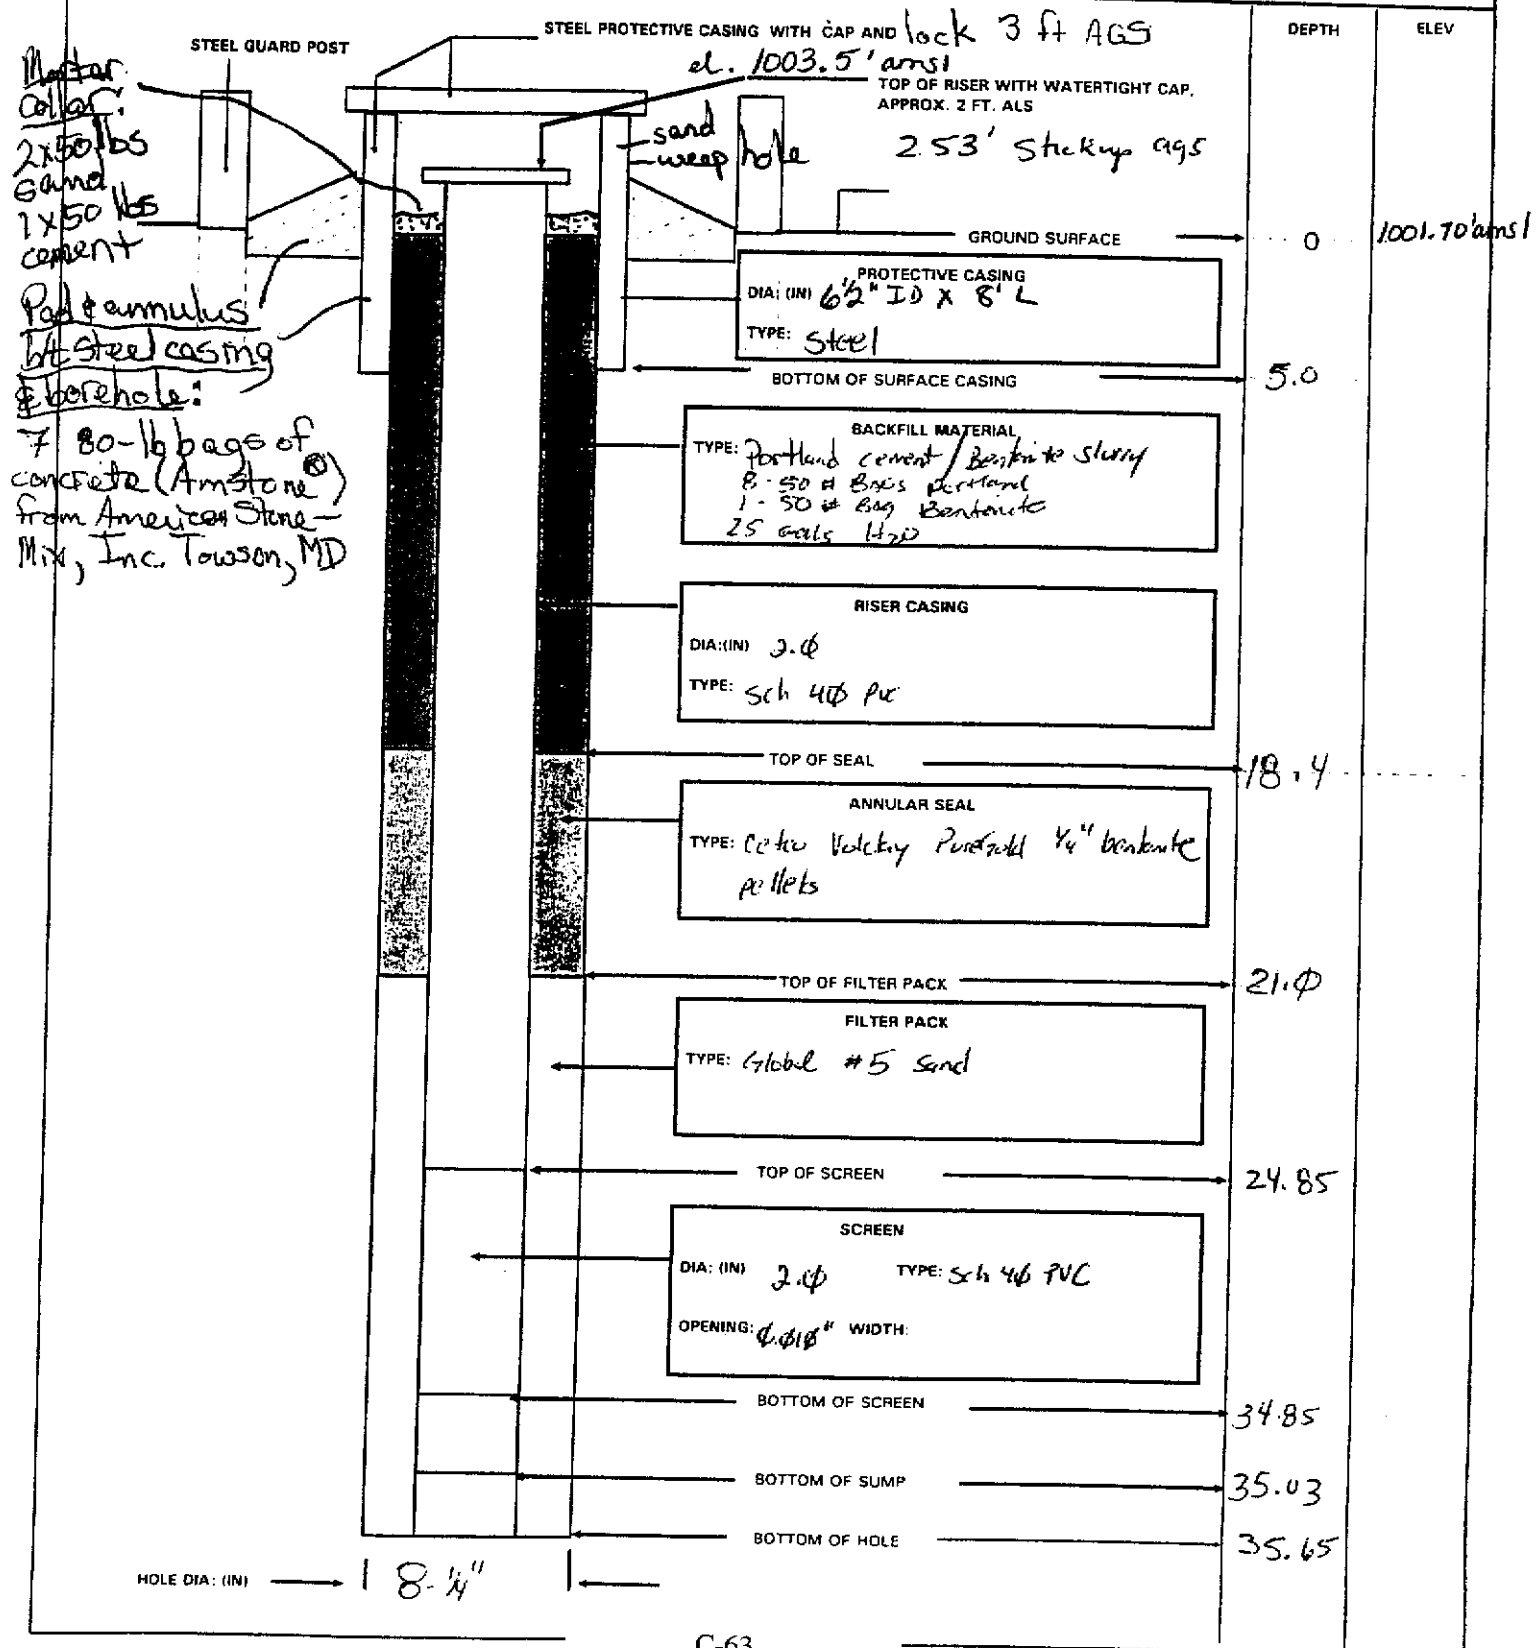 STEEL PROTECTIVE CASING WITH CAP AND lock 3 ft AGS
DEPTH
ELEV
STEEL GUARD POST
el. 1003.5' amsl
TOP OF RISER WITH WATERTIGHT CAP,
APPROX. 2 FT. ALS
2.53' Stickup ags
Mortar
Collar:
2x50 lbs
sand
1x50 lbs
cement
sand
weep hole
GROUND SURFACE
0
1001.70' amsl
Pad & annulus
b/t Steel casing
& borehole:
7 80-lb bags of
concrete (Amstone®)
from American Stone-
Mix, Inc. Towson, MD
PROTECTIVE CASING
DIA: (IN) 6½" ID X 8' L
TYPE: Steel
BOTTOM OF SURFACE CASING
5.0
BACKFILL MATERIAL
TYPE: Portland cement/Bentonite slurry
8-50 # Bags portland
1-50 # Bag Bentonite
25 gals H2O
RISER CASING
DIA:(IN) 2.0
TYPE: Sch 40 PVC
TOP OF SEAL
18.4
ANNULAR SEAL
TYPE: 1/4" bentonite
pellets
TOP OF FILTER PACK
21.0
FILTER PACK
TYPE: Global #5 Sand
TOP OF SCREEN
24.85
SCREEN
DIA: (IN) 2.0 TYPE: Sch 40 PVC
OPENING: 0.010" WIDTH:
BOTTOM OF SCREEN
34.85
BOTTOM OF SUMP
35.03
BOTTOM OF HOLE
35.65
HOLE DIA: (IN) 8-1/4"
C-63